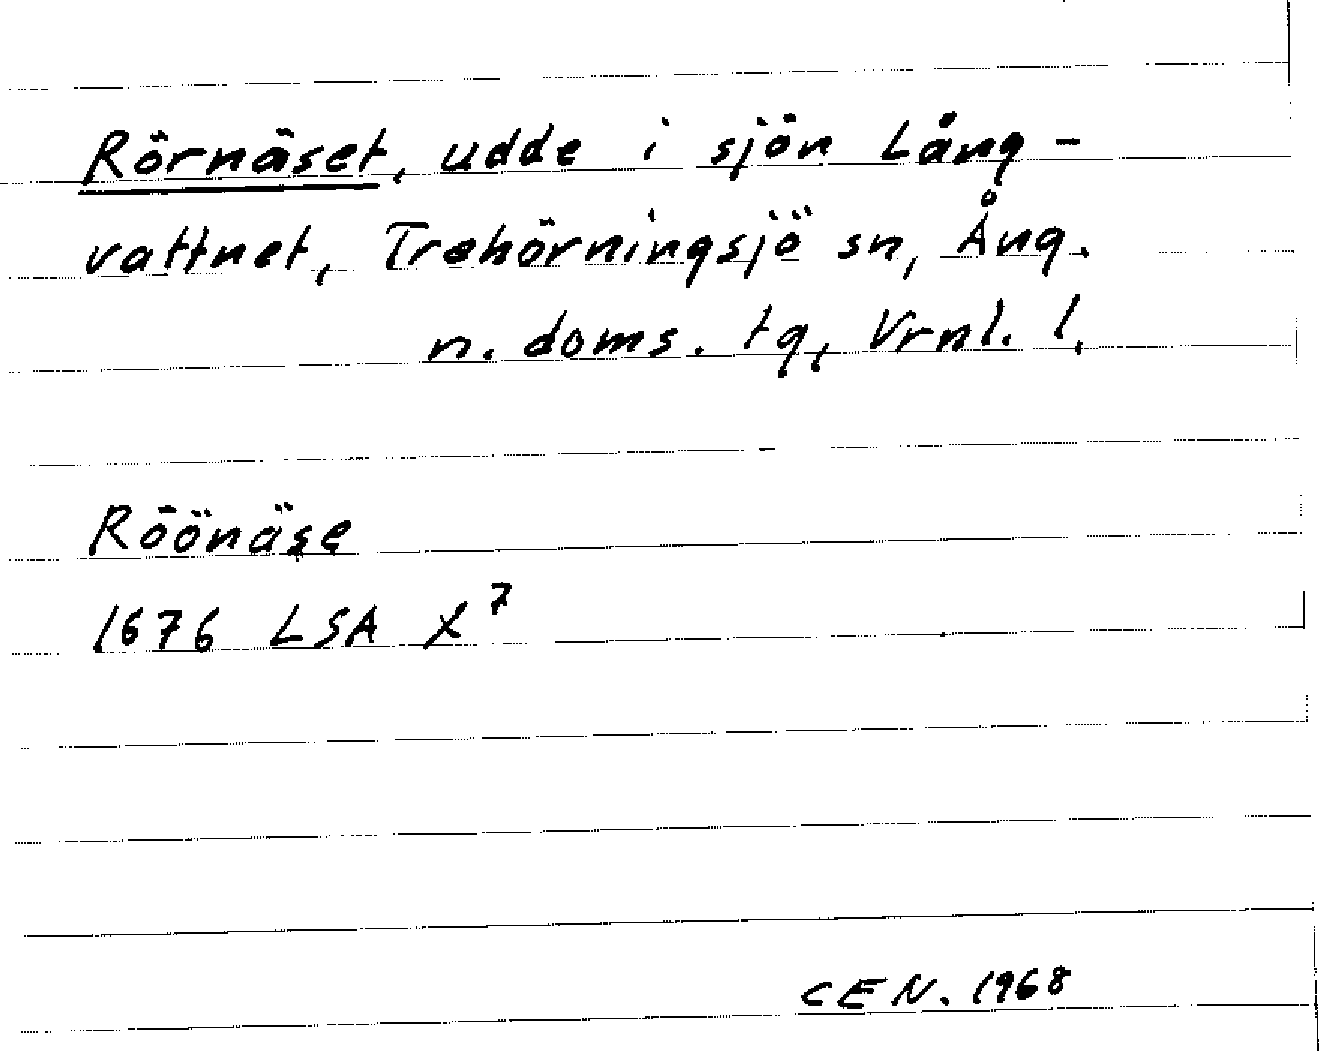 Rörnäset, udde i sjön Lång-
vattnet, Trehörningsjö sn, Ång.
n. doms. tg, Vrnl. l.
Röönäse
1676 LSA X⁷
CEN. 1968